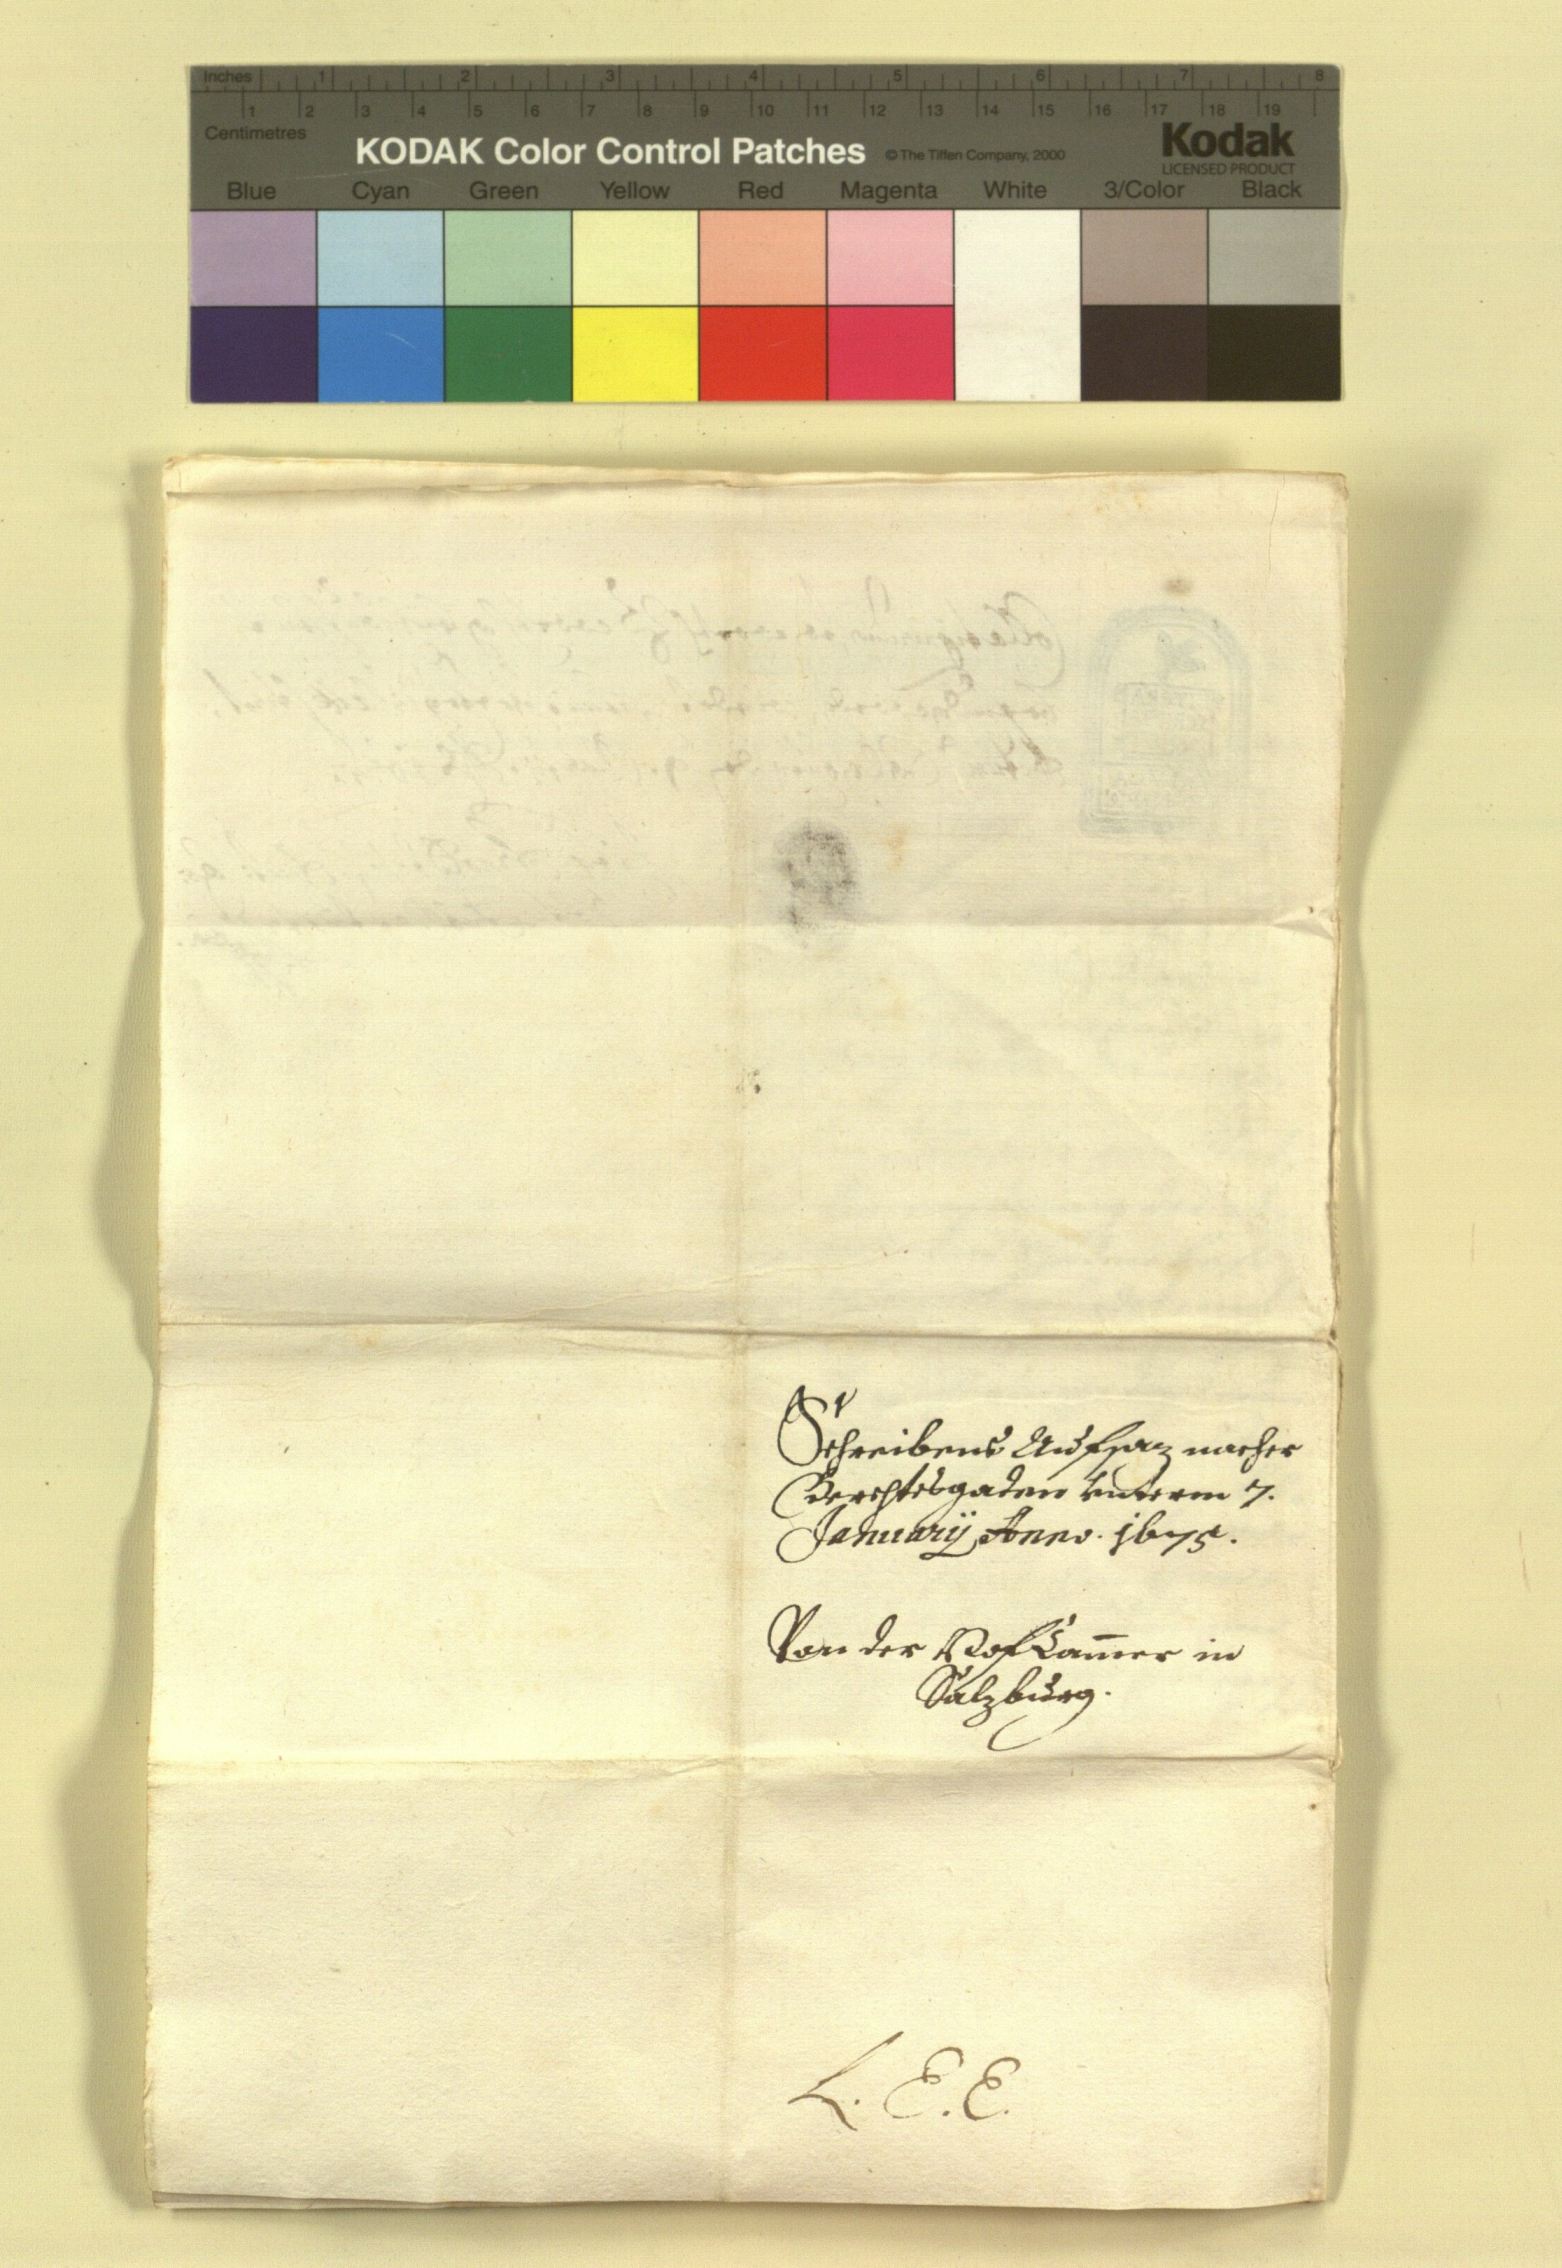 Inches 1 2 3 4 5 6 7 8
1 2 3 4 5 6 7 8 9 10 11 12 13 14 15 16 17 18 19
Centimetres
KODAK Color Control Patches © The Tiffen Company, 2000 Kodak
LICENSED PRODUCT
Blue Cyan Green Yellow Red Magenta White 3/Color Black
Schreibens Aufsaz nacher
Berchtesgaden unterm 7.
Januarÿ Anno. 1675.
Von der Hof Cam̄er in
Salzburg.
L. E. E.